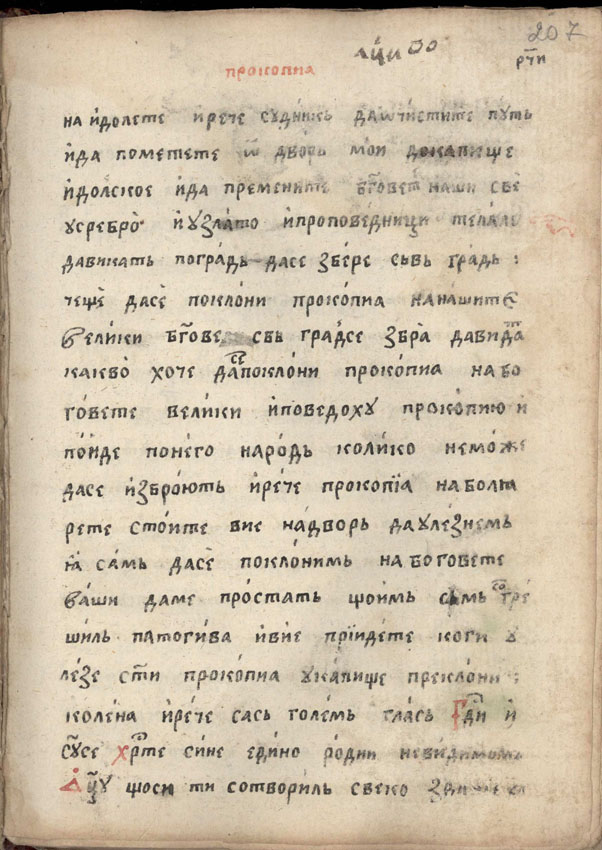 207
рч҃и
прокопиа
на и҆долете и҆рече судникь даѡ҆чистите путь
и҆да пометете ѿ дворь мои докапище
и҆долское и҆да премените бг҃овете наши све
усребро и҆узлато и҆проповедници телале
давикать поградь дасе збере сьвь градь :
чеще дасе поклони прокопиа нанашите
велики бг҃ове сьь градсе збра давида
какво хоче дасе поклони прокопиа набо
говете велики и҆поведоху прокопию и
поиде понего народь колико неможе
дасе и҆зброють и҆рече прокопїа наболꙗ
рете стоите вие надворь даулезнемь
ꙗ самь дасе поклонимь набоговете
ваши даме простать щоимь сьмь согре
шиль патогива и҆вие прїидете коги у
лезе ст҃и прокопиа укапище преклони :
колена и҆рече сась големь глась гд҃и и
сусе хр҃те сине едино родни невидимомь
ѡ҃цу щоси ти сотвориль свеко